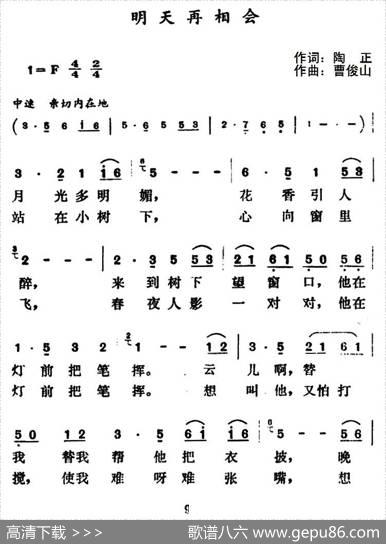 明天再相会
1=F 4/4 2/4
作词：陶 正
作曲：曹俊山
中速 亲切内在地
(3·5 6 i 6 | 5·6 5 3 | 2·7 6 5 | 1--- |)
3· 2 1 i·6 | 5--- | 6 3·5 5 3
月光多明媚， 花香引人
站在小树下， 心向窗里
2--- | 1 2 3·5 5 3 | 2 1 6 1 5 0 5 6
醉， 来到树下望窗口，他在
飞， 春夜人影一对对，他在
1·5 3 2 | 1-- 1 2 | 3·5 2 1 6 1
灯前把笔挥。 云儿啊，替
灯前把笔挥。 想叫他，又怕打
5 0 1 2 3· 5 | 6 i i 6 5·6 | 5 3· 5 3
我 替我帮他把衣披，晚
搅，使我难呀难张嘴，想
9
高清下载 >>>
歌谱八六 www.gepu86.com